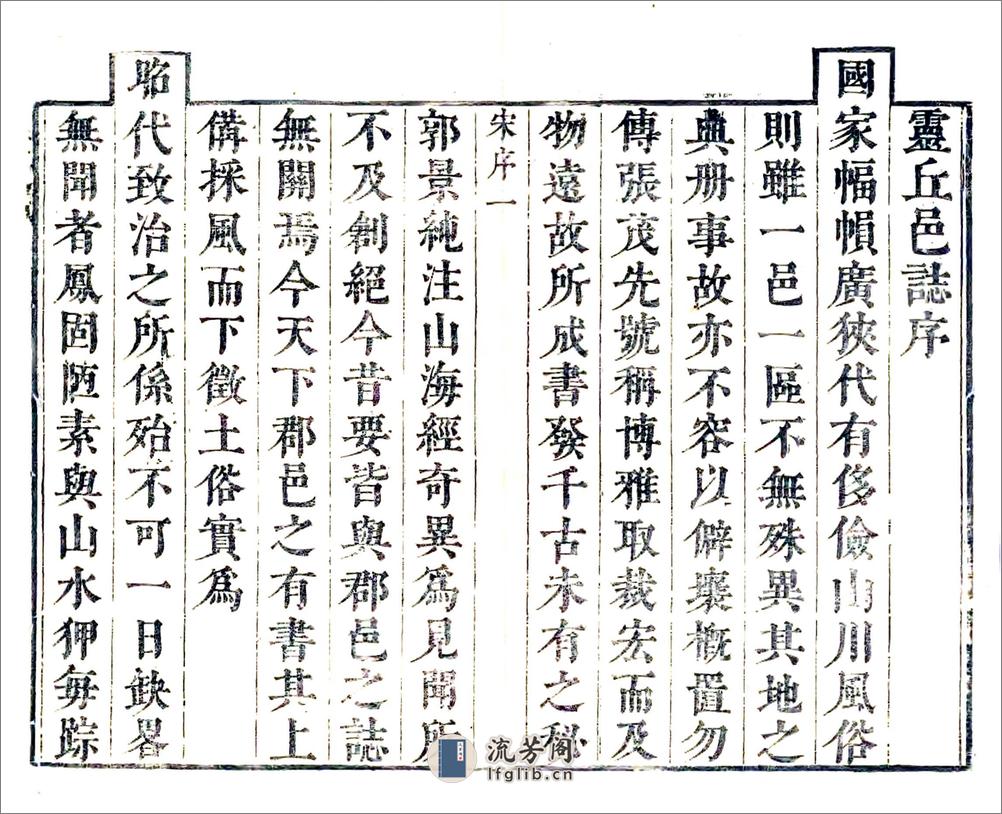 靈丘邑誌序
國家幅㡓廣狹代有侈儉山川風俗
則雖一邑一區不無殊異其地之
典册事故亦不容以僻壤概置勿
傳張茂先號稱博雅取裁宏而及
物遠故所成書發千古未有之秘
宋序 一
郭景純注山海經奇異爲見聞所
不及創絕今昔要皆與郡邑之誌
無關焉今天下郡邑之有書其上
備採風而下徵土俗實爲
昭代致治之所係殆不可一日缺畧
無聞者鳳固陋素與山水狎每踪
流芳阁
lfglib.cn